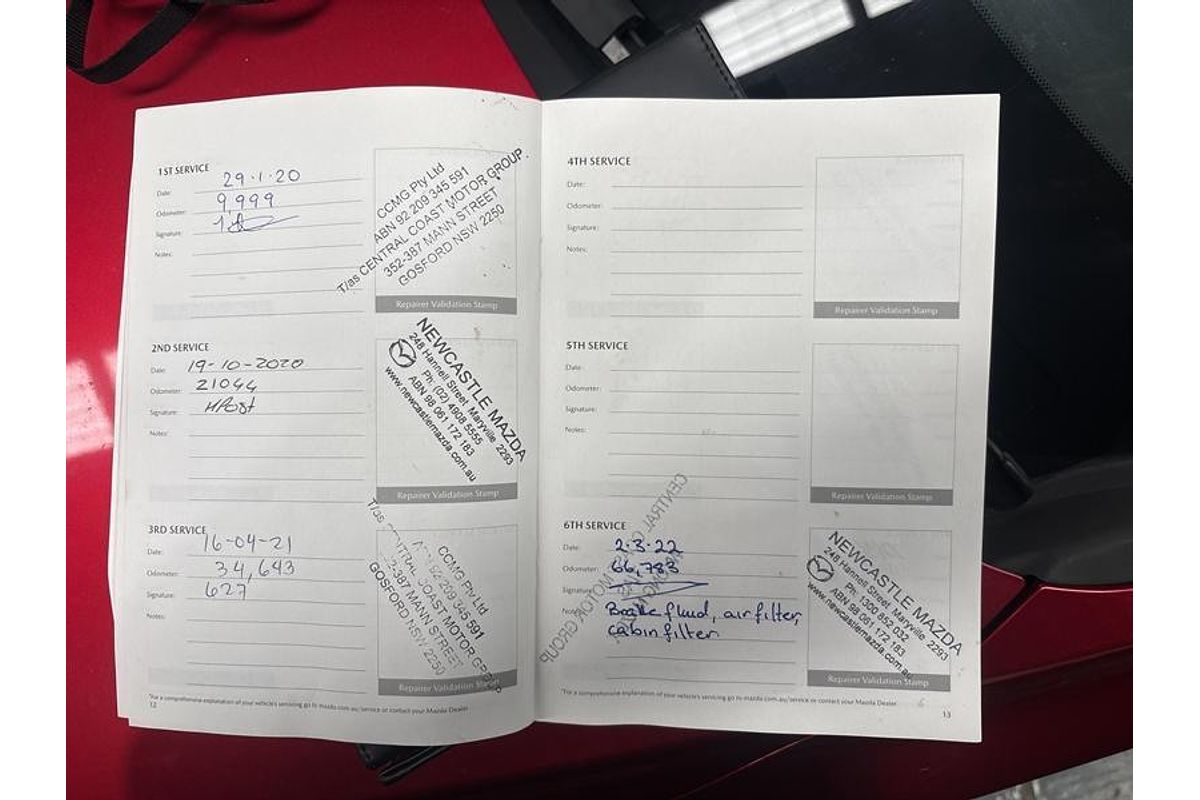 1ST SERVICE
Date: 29·1·20
Odometer: 9,999
Signature:
Notes:
CCMG Pty Ltd
ABN 92 209 345 591
T/as CENTRAL COAST MOTOR GROUP
352-387 MANN STREET
GOSFORD NSW 2250
Repairer Validation Stamp
2ND SERVICE
Date: 19-10-2020
Odometer: 21044
Signature:
Notes:
NEWCASTLE MAZDA
248 Hannell Street, Maryville 2293
Ph: (02) 4908 5555
ABN 98 061 172 183
www.newcastlemazda.com.au
Repairer Validation Stamp
3RD SERVICE
Date: 16-04-21
Odometer: 34,643
Signature: 627
Notes:
CCMG Pty Ltd
92 209 345 591
T/as COAST MOTOR GROUP
387 MANN STREET
GOSFORD NSW 2250
Repairer Validation Stamp
*For a comprehensive explanation of your vehicle's servicing go to mazda.com.au/service or contact your Mazda Dealer
12
4TH SERVICE
Date:
Odometer:
Signature:
Notes:
Repairer Validation Stamp
5TH SERVICE
Date:
Odometer:
Signature:
Notes:
Repairer Validation Stamp
6TH SERVICE
Date: 2·3·22
Odometer: 66,783
Signature:
Notes: Brake fluid, air filter,
cabin filter
NEWCASTLE MAZDA
248 Hannell Street, Maryville 2293
Ph: 1300 852 032
ABN 98 061 172 183
www.newcastlemazda.com.au
Repairer Validation Stamp
*For a comprehensive explanation of your vehicle's servicing go to mazda.com.au/service or contact your Mazda Dealer
13